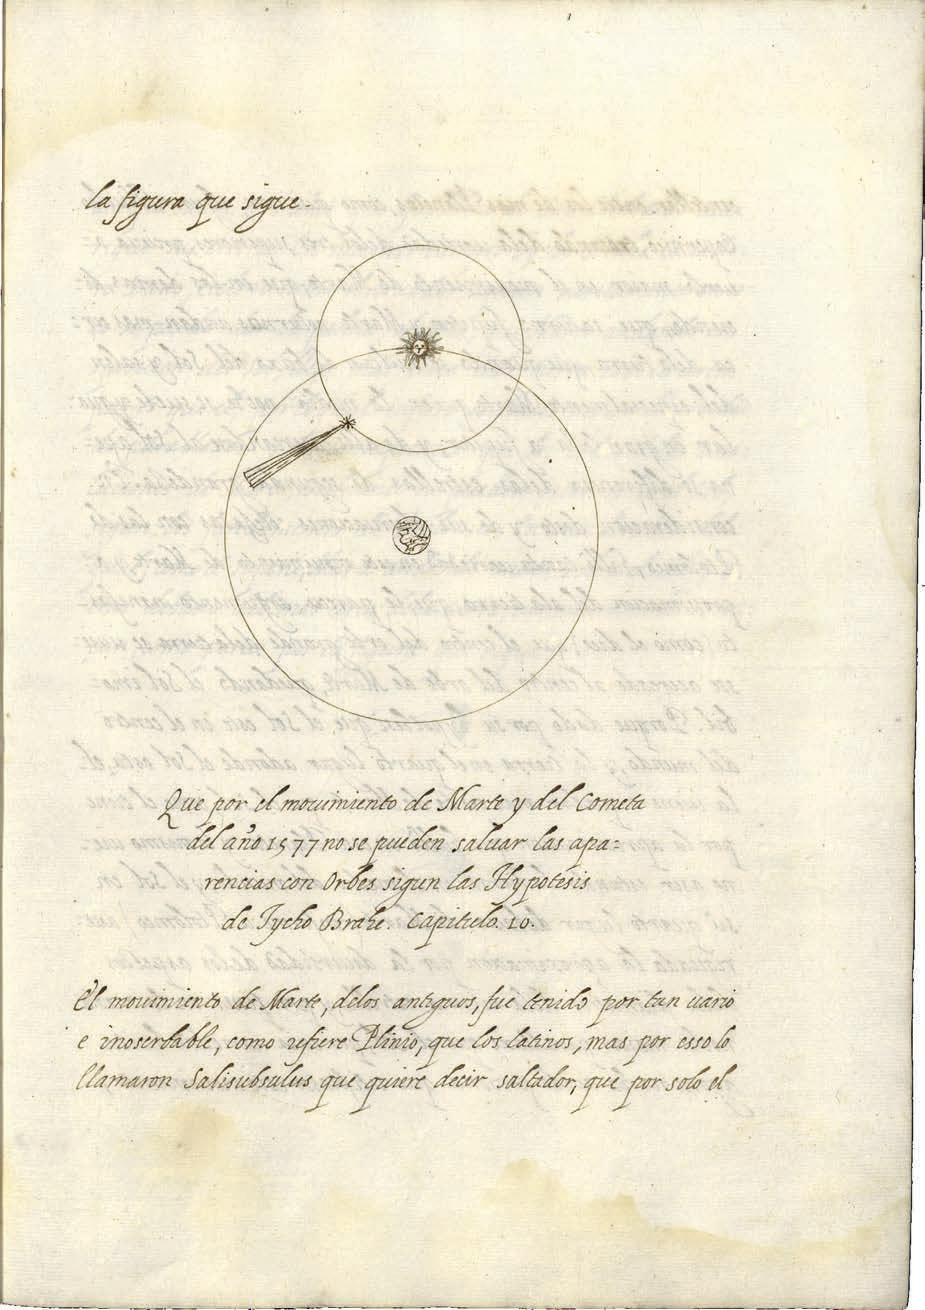 la figura que sigue.
Que por el mouimiento de Marte y del Cometa
del año 1577 no se pueden saluar las apa=
rencias con Orbes sigun las Hypotésis
de Tycho Brahe. Capitulo. 10.
El mouimiento de Marte, delos antiguos, fue tenido por tan uario
e inoseruable, como refiere Plinio, que los latinos, mas por esso lo
llamaron Salisubsulus que quiere decir saltador, que por solo el